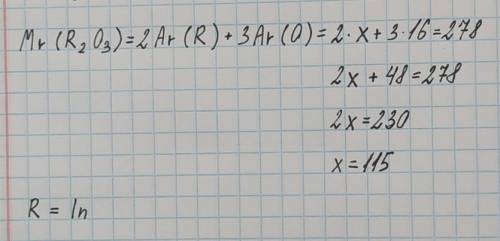 Mr (R₂O₃) = 2Ar (R) + 3Ar (O) = 2·x + 3·16 = 278
2x + 48 = 278
2x = 230
x = 115
R = In